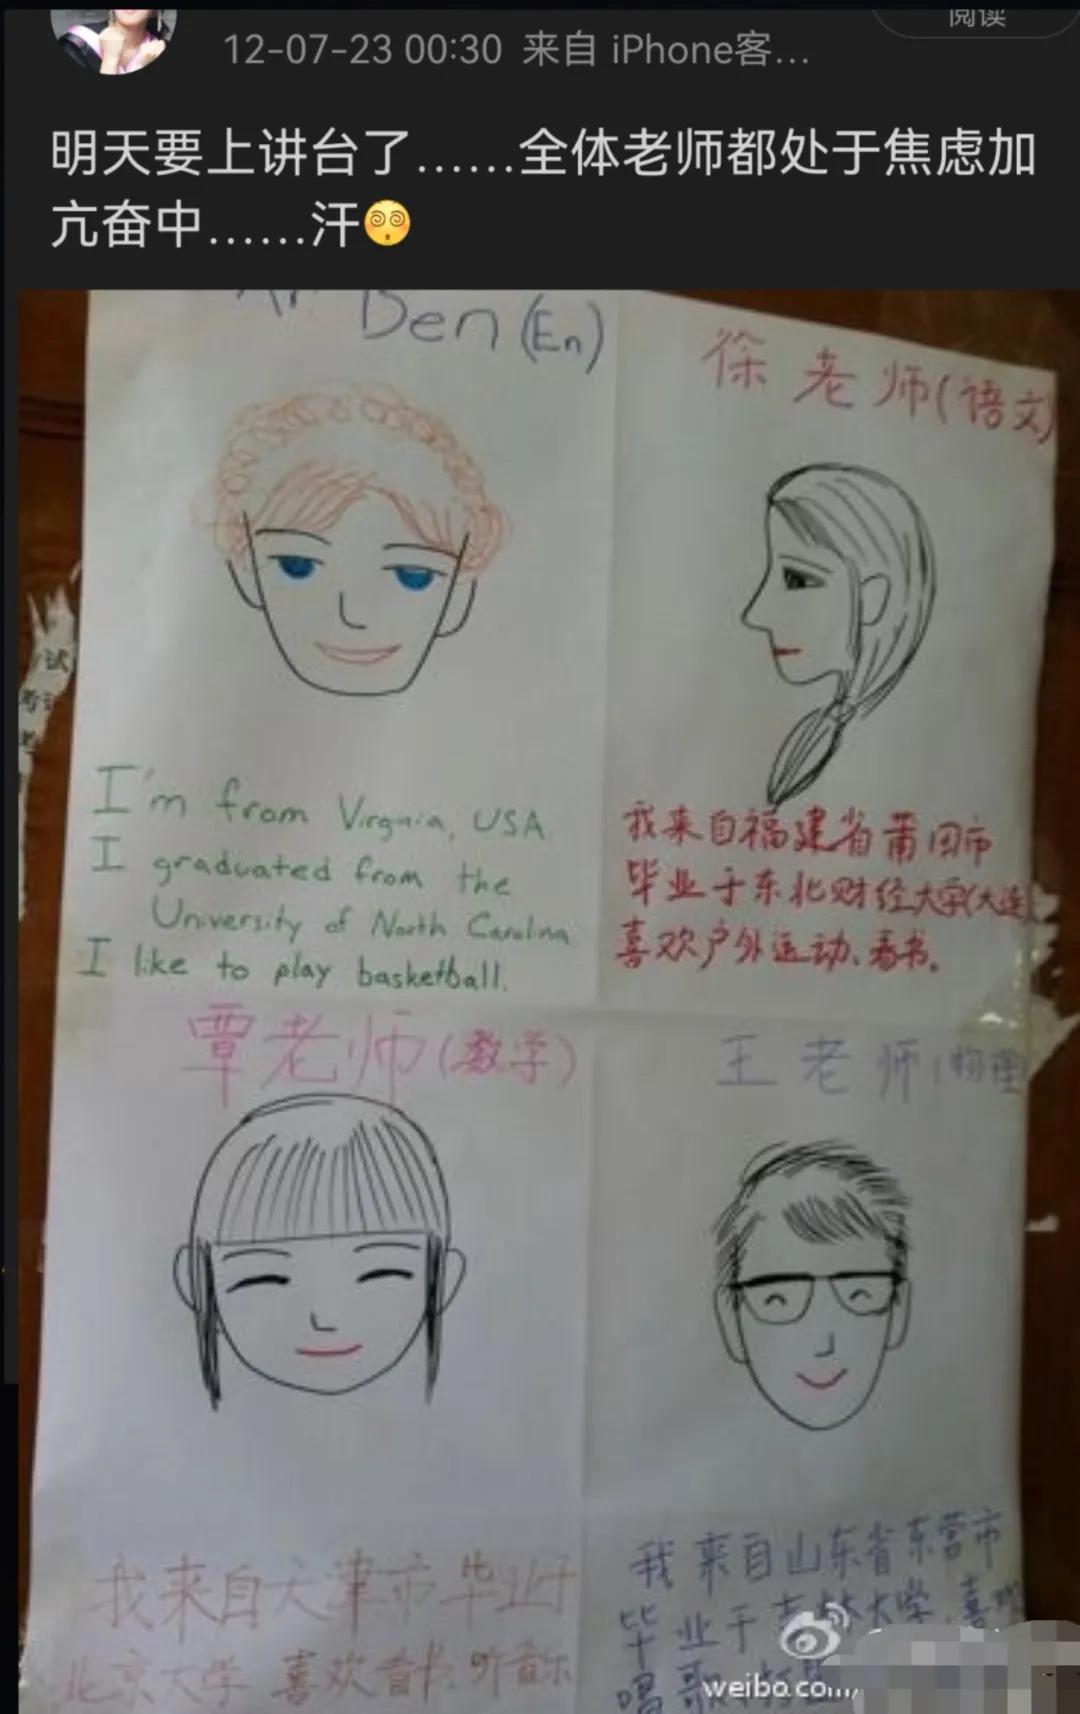 阅读
12-07-23 00:30 来自 iPhone客...
明天要上讲台了......全体老师都处于焦虑加
亢奋中......汗
Ben (En)
I'm from Virginia, USA
I graduated from the
University of North Carolina
I like to play basketball.
徐老师(语文)
我来自福建省莆田市
毕业于东北财经大学(大连)
喜欢户外运动、看书。
覃老师(数学)
我来自天津市毕业于
北京大学 喜欢看书、听音乐
王老师(物理
我来自山东省东营市
毕业于吉林大学,喜欢
唱歌
试
考试
考
weibo.com/